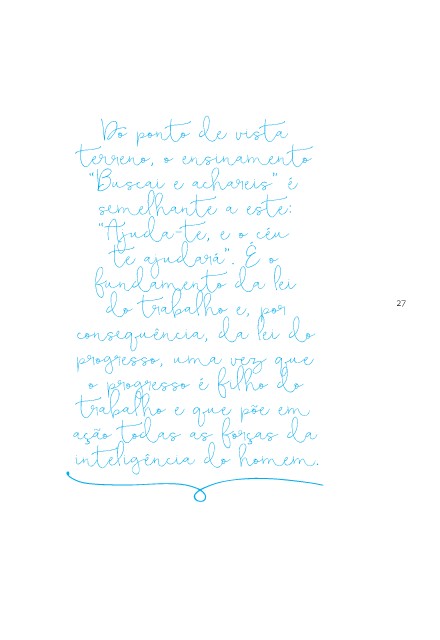 Do ponto de vista
terreno, o ensinamento
"Buscai e achareis" é
semelhante a este:
"Ajuda-te, e o céu
te ajudará". É o
fundamento da lei
do trabalho e, por
consequência, da lei do
progresso, uma vez que
o progresso é filho do
trabalho e que põe em
ação todas as forças da
inteligência do homem.
27